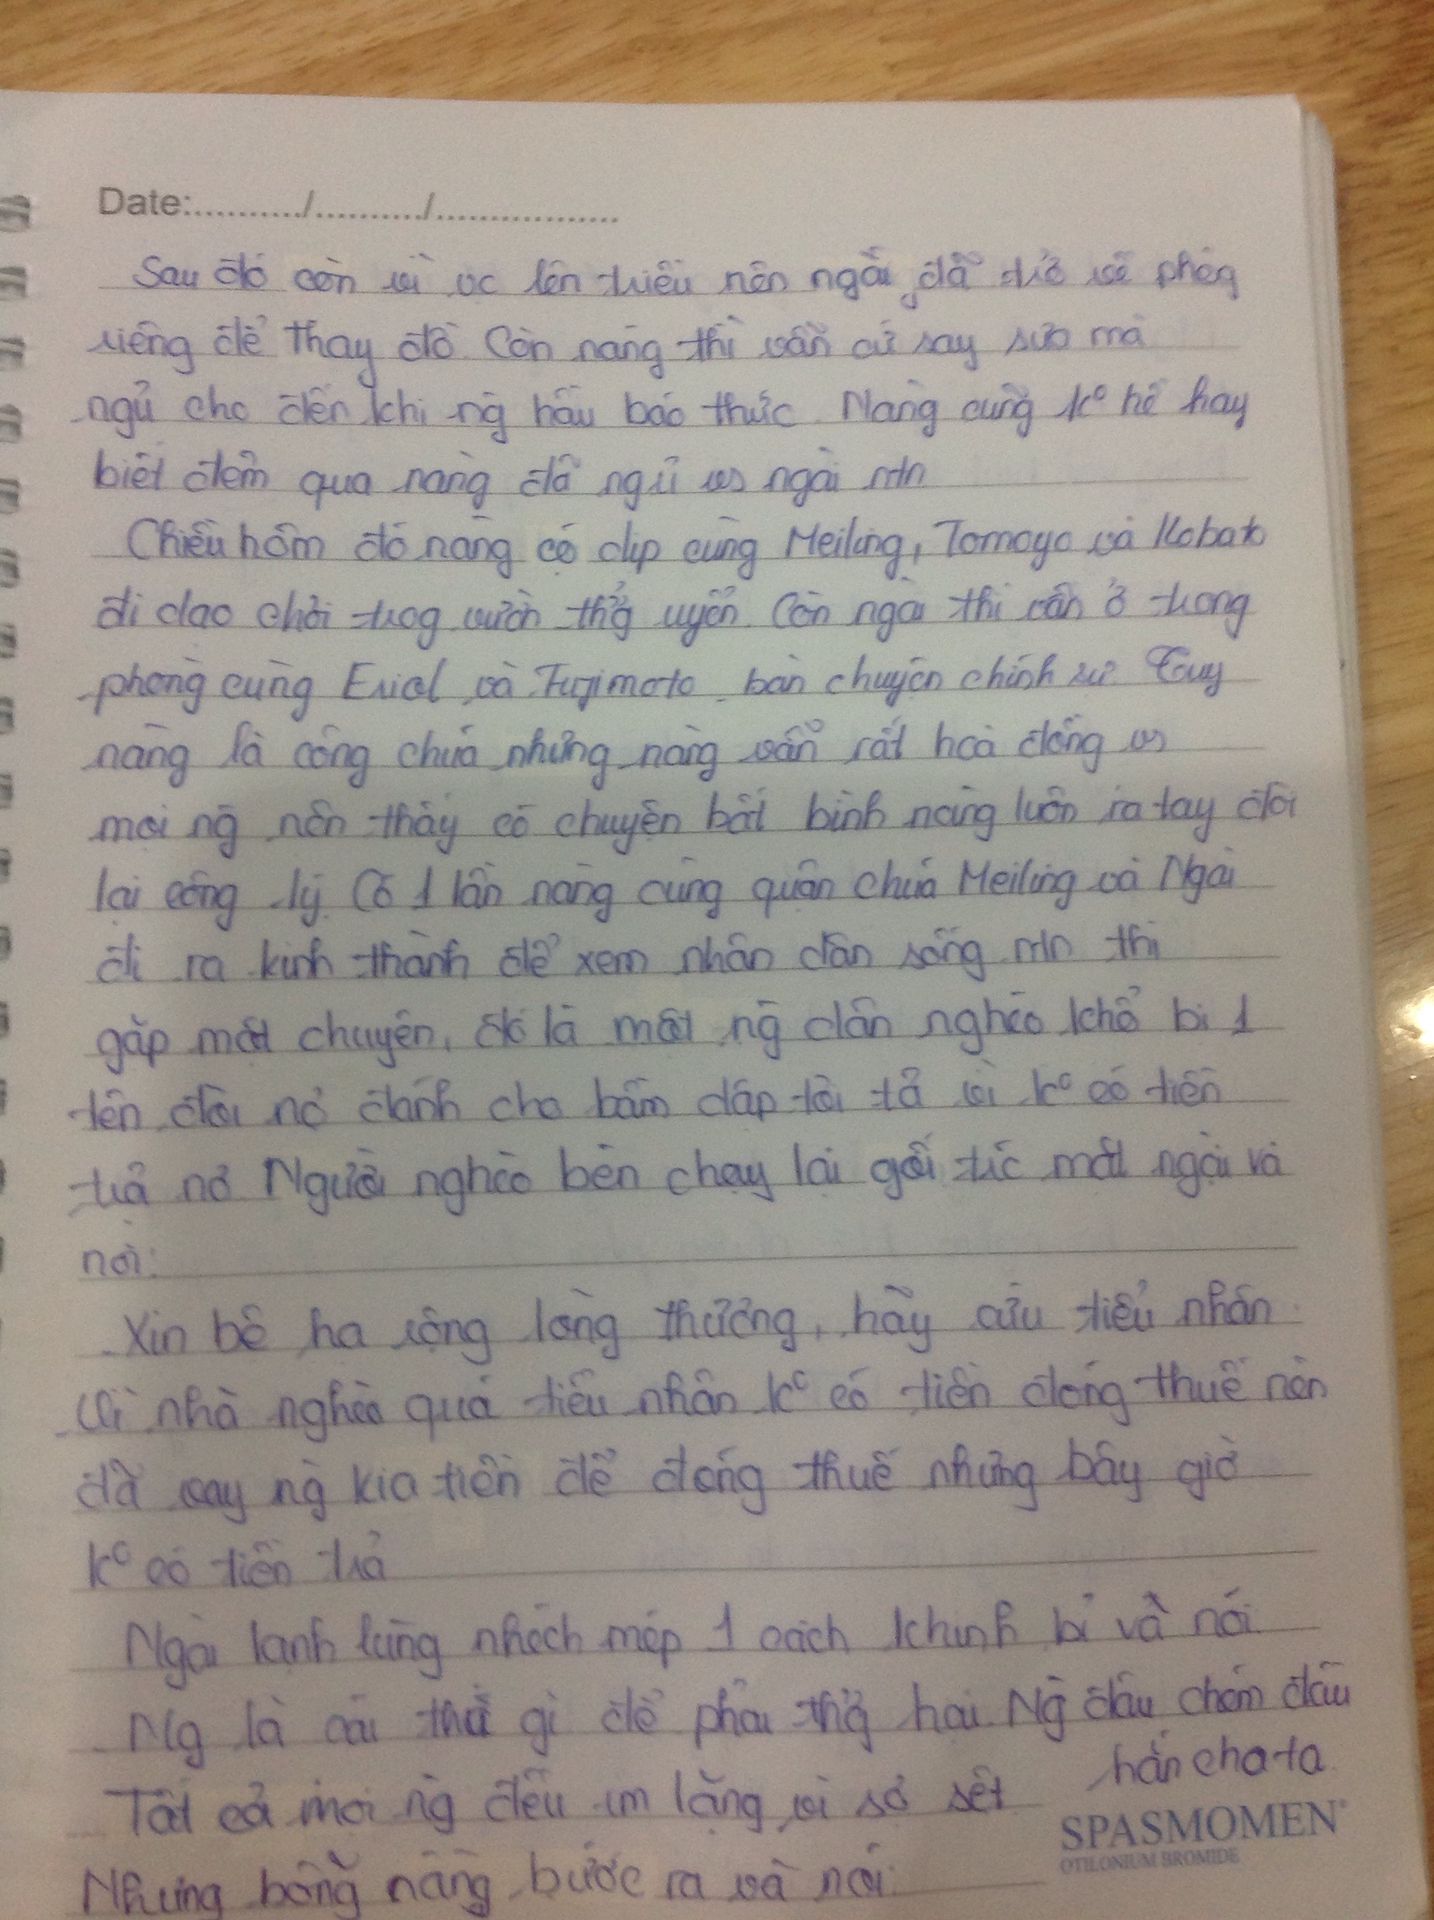 Date:.........../.........../..................
Sau đó còn vì vc lên triều nên ngài đã trở về phòg
riêng để thay đồ Còn nàng thì vẫn cứ say sưa mà
ngủ cho đến khi ng hầu báo thức. Nàng cũng k° hề hay
biết đêm qua nàng đã ngủ vs ngài ntn
Chiều hôm đó nàng có dịp cùng Meiling, Tomoyo và Kobato
đi dạo chơi trog vườn thg uyển. Còn ngài thì vẫn ở trong
phòng cùng Eriol và Fujimoto bàn chuyện chính sự Tuy
nàng là công chúa nhưng nàng vẫn rất hoà đồng vs
mọi ng nên thấy có chuyện bất bình nàng luôn ra tay đòi
lại công lý. Có 1 lần nàng cùng quận chúa Meiling và Ngài
đi ra kinh thành để xem nhân dân sống ntn thì
gặp một chuyện, đó là một ng dân nghèo khổ bị 1
tên đòi nợ đánh cho bầm dập tơi tả vì k° có tiền
trả nợ Người nghèo bèn chạy lại gối trc mặt ngài và
nói:
Xin bệ hạ rộng lòng thương, hãy cứu tiểu nhân
Vì nhà nghèo quá tiểu nhân k° có tiền đóng thuế nên
đã vay ng kia tiền để đóng thuế nhưng bây giờ
k° có tiền trả
Ngài lạnh lùng nhếch mép 1 cách khinh bỉ và nói
Ng là cái thá gì để phải thg hại. Ng đâu chém đầu
hắn cho ta
Tất cả mọi ng đều im lặng vì sợ sệt
SPASMOMEN®
OTILONIUM BROMIDE
Nhưng bỗng nàng bước ra và nói